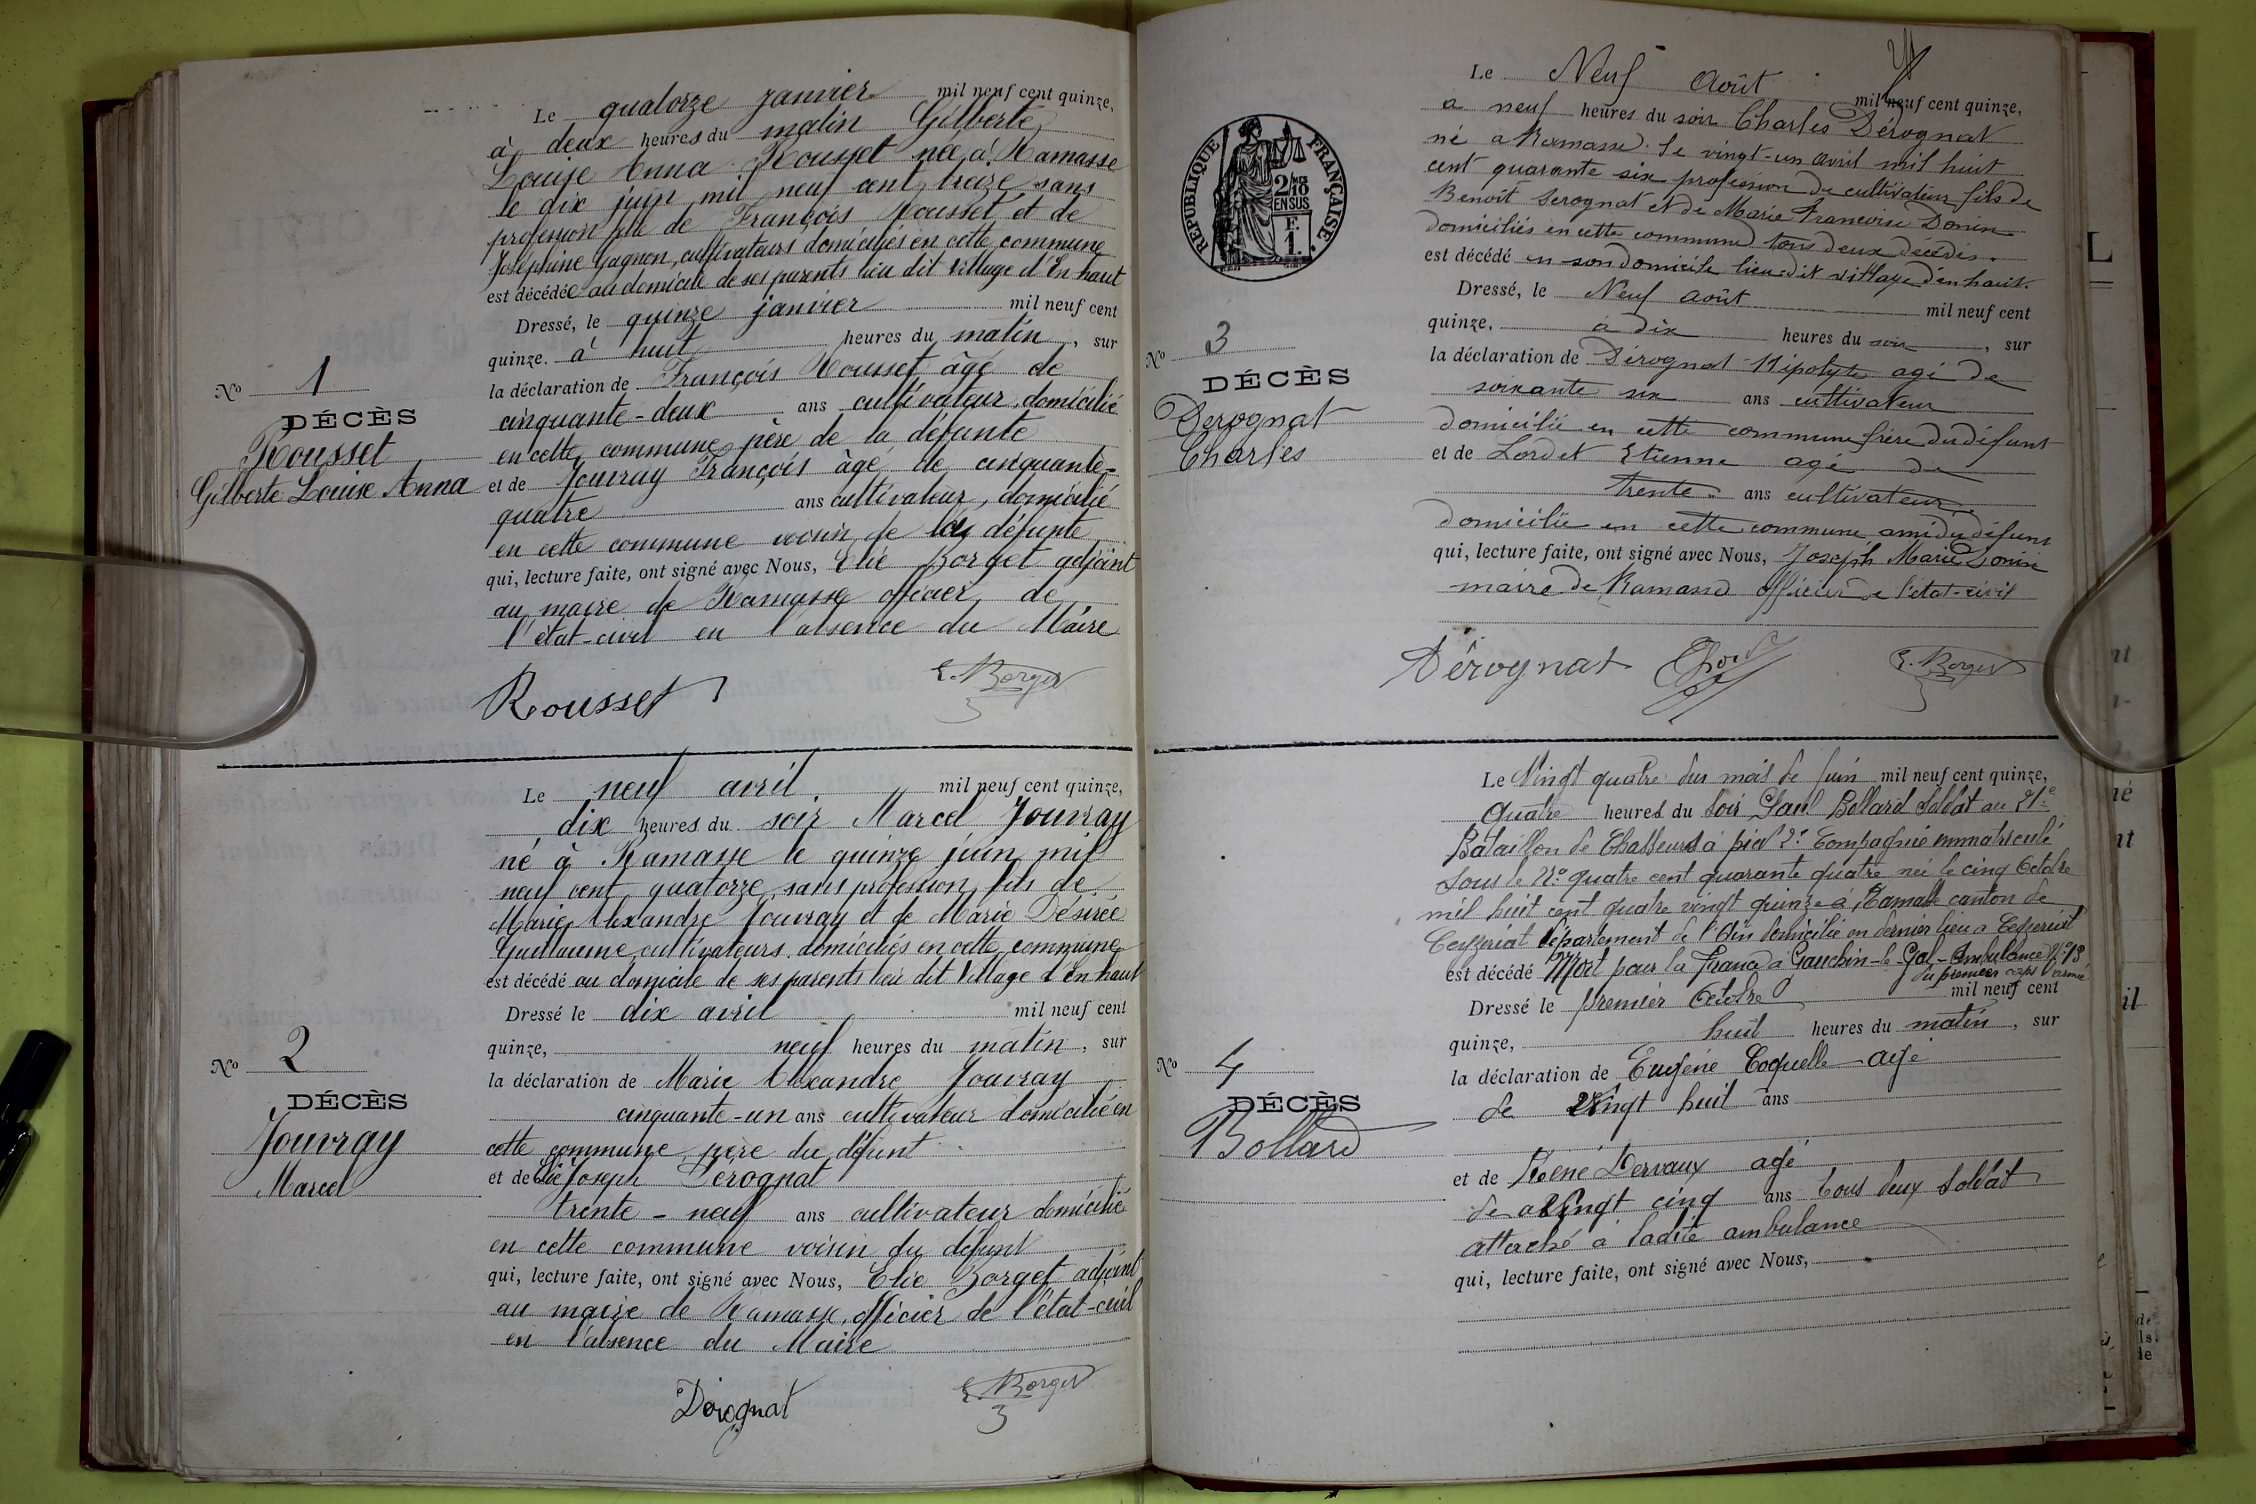 Le quatorze janvier mil neuf cent quinze,
à deux heures du matin Gilberte
Louise Anna Rousset née à Ramasse
le dix juin mil neuf cent treize sans
profession fille de François Rousset et de
Joséphine Gagnon, cultivateurs domiciliés en cette commune
est décédée au domicile de ses parents lieu dit Village d'En haut
Dressé, le quinze janvier mil neuf cent
quinze. à huit heures du matin, sur
la déclaration de François Rousset âgé de
cinquante-deux ans cultivateur, domicilié
en cette commune, père de la défunte
et de Jouvray François âgé de cinquante-
quatre ans cultivateur, domicilié
en cette commune voisin de la défunte
qui, lecture faite, ont signé avec Nous, Elie Borget adjoint
au maire de Ramasse officier de
l'état-civil en l'absence du Maire
Rousset E. Borget
No 1
DÉCÈS
Rousset
Gilberte Louise Anna
Le neuf avril mil neuf cent quinze,
dix heures du soir Marcel Jouvray
né à Ramasse le quinze juin mil
neuf cent quatorze, sans profession, fils de
Marie Alexandre Jouvray et de Marie Désirée
Guillaume, cultivateurs, domiciliés en cette commune
est décédé au domicile de ses parents lieu dit Village d'en haut
Dressé le dix avril mil neuf cent
quinze, neuf heures du matin, sur
la déclaration de Marie Alexandre Jouvray
cinquante-un ans cultivateur domicilié en
cette commune, père du défunt
et de Elie Joseph Dérognat
trente-neuf ans cultivateur domicilié
en cette commune voisin du défunt
qui, lecture faite, ont signé avec Nous, Elie Borget adjoint
au maire de Ramasse, officier de l'état-civil
en l'absence du Maire
Dérognat E. Borget
No 2
DÉCÈS
Jouvray
Marcel
RÉPUBLIQUE FRANÇAISE.
2/10
EN SUS
F.
1.
Le Neuf Août mil neuf cent quinze,
a neuf heures du soir Charles Dérognat
né a Ramasse le vingt-un avril mil huit
cent quarante six profession de cultivateur fils de
Benoît Serognat et de Marie Francoise Donin
domiciliés en cette commune tous deux décédés.
est décédé en son domicile lieu-dit village d'en haut.
Dressé, le Neuf Août mil neuf cent
quinze. à dix heures du soir, sur
la déclaration de Dérognat Hipolyte agé de
soixante six ans cultivateur
domicilié en cette commune frère du défunt
et de Lordet Etienne agé de
trente ans cultivateur
domicilié en cette commune ami du défunt
qui, lecture faite, ont signé avec Nous, Joseph Marie Donin
maire de Ramasse officier de l'état-civil
Dérognat E. Borget
No 3
DÉCÈS
Derognat
Charles
Le Vingt quatre du mois de Juin mil neuf cent quinze,
Quatre heures du soir Paul Bollard Soldat au 21e
Bataillon de Chasseurs à pied 2e Compagnie immatriculé
sous le No quatre cent quarante quatre né le cinq Octobre
mil huit cent quatre vingt quinze à Ramasse canton de
Ceyzeriat département de l'Ain domicilié en dernier lieu a Ceyzeriat
est décédé Mort pour la France à Gauchin-le-Gal-Ambulance No 13
du premier corps d'armée
Dressé le premier Octobre mil neuf cent
quinze, huit heures du matin, sur
la déclaration de Eugène Coquelle agé
de Vingt huit ans
et de René Dervaux agé
de Vingt cinq ans tous deux soldat
attaché à ladite ambulance
qui, lecture faite, ont signé avec Nous,
No 4
DÉCÈS
Bollard